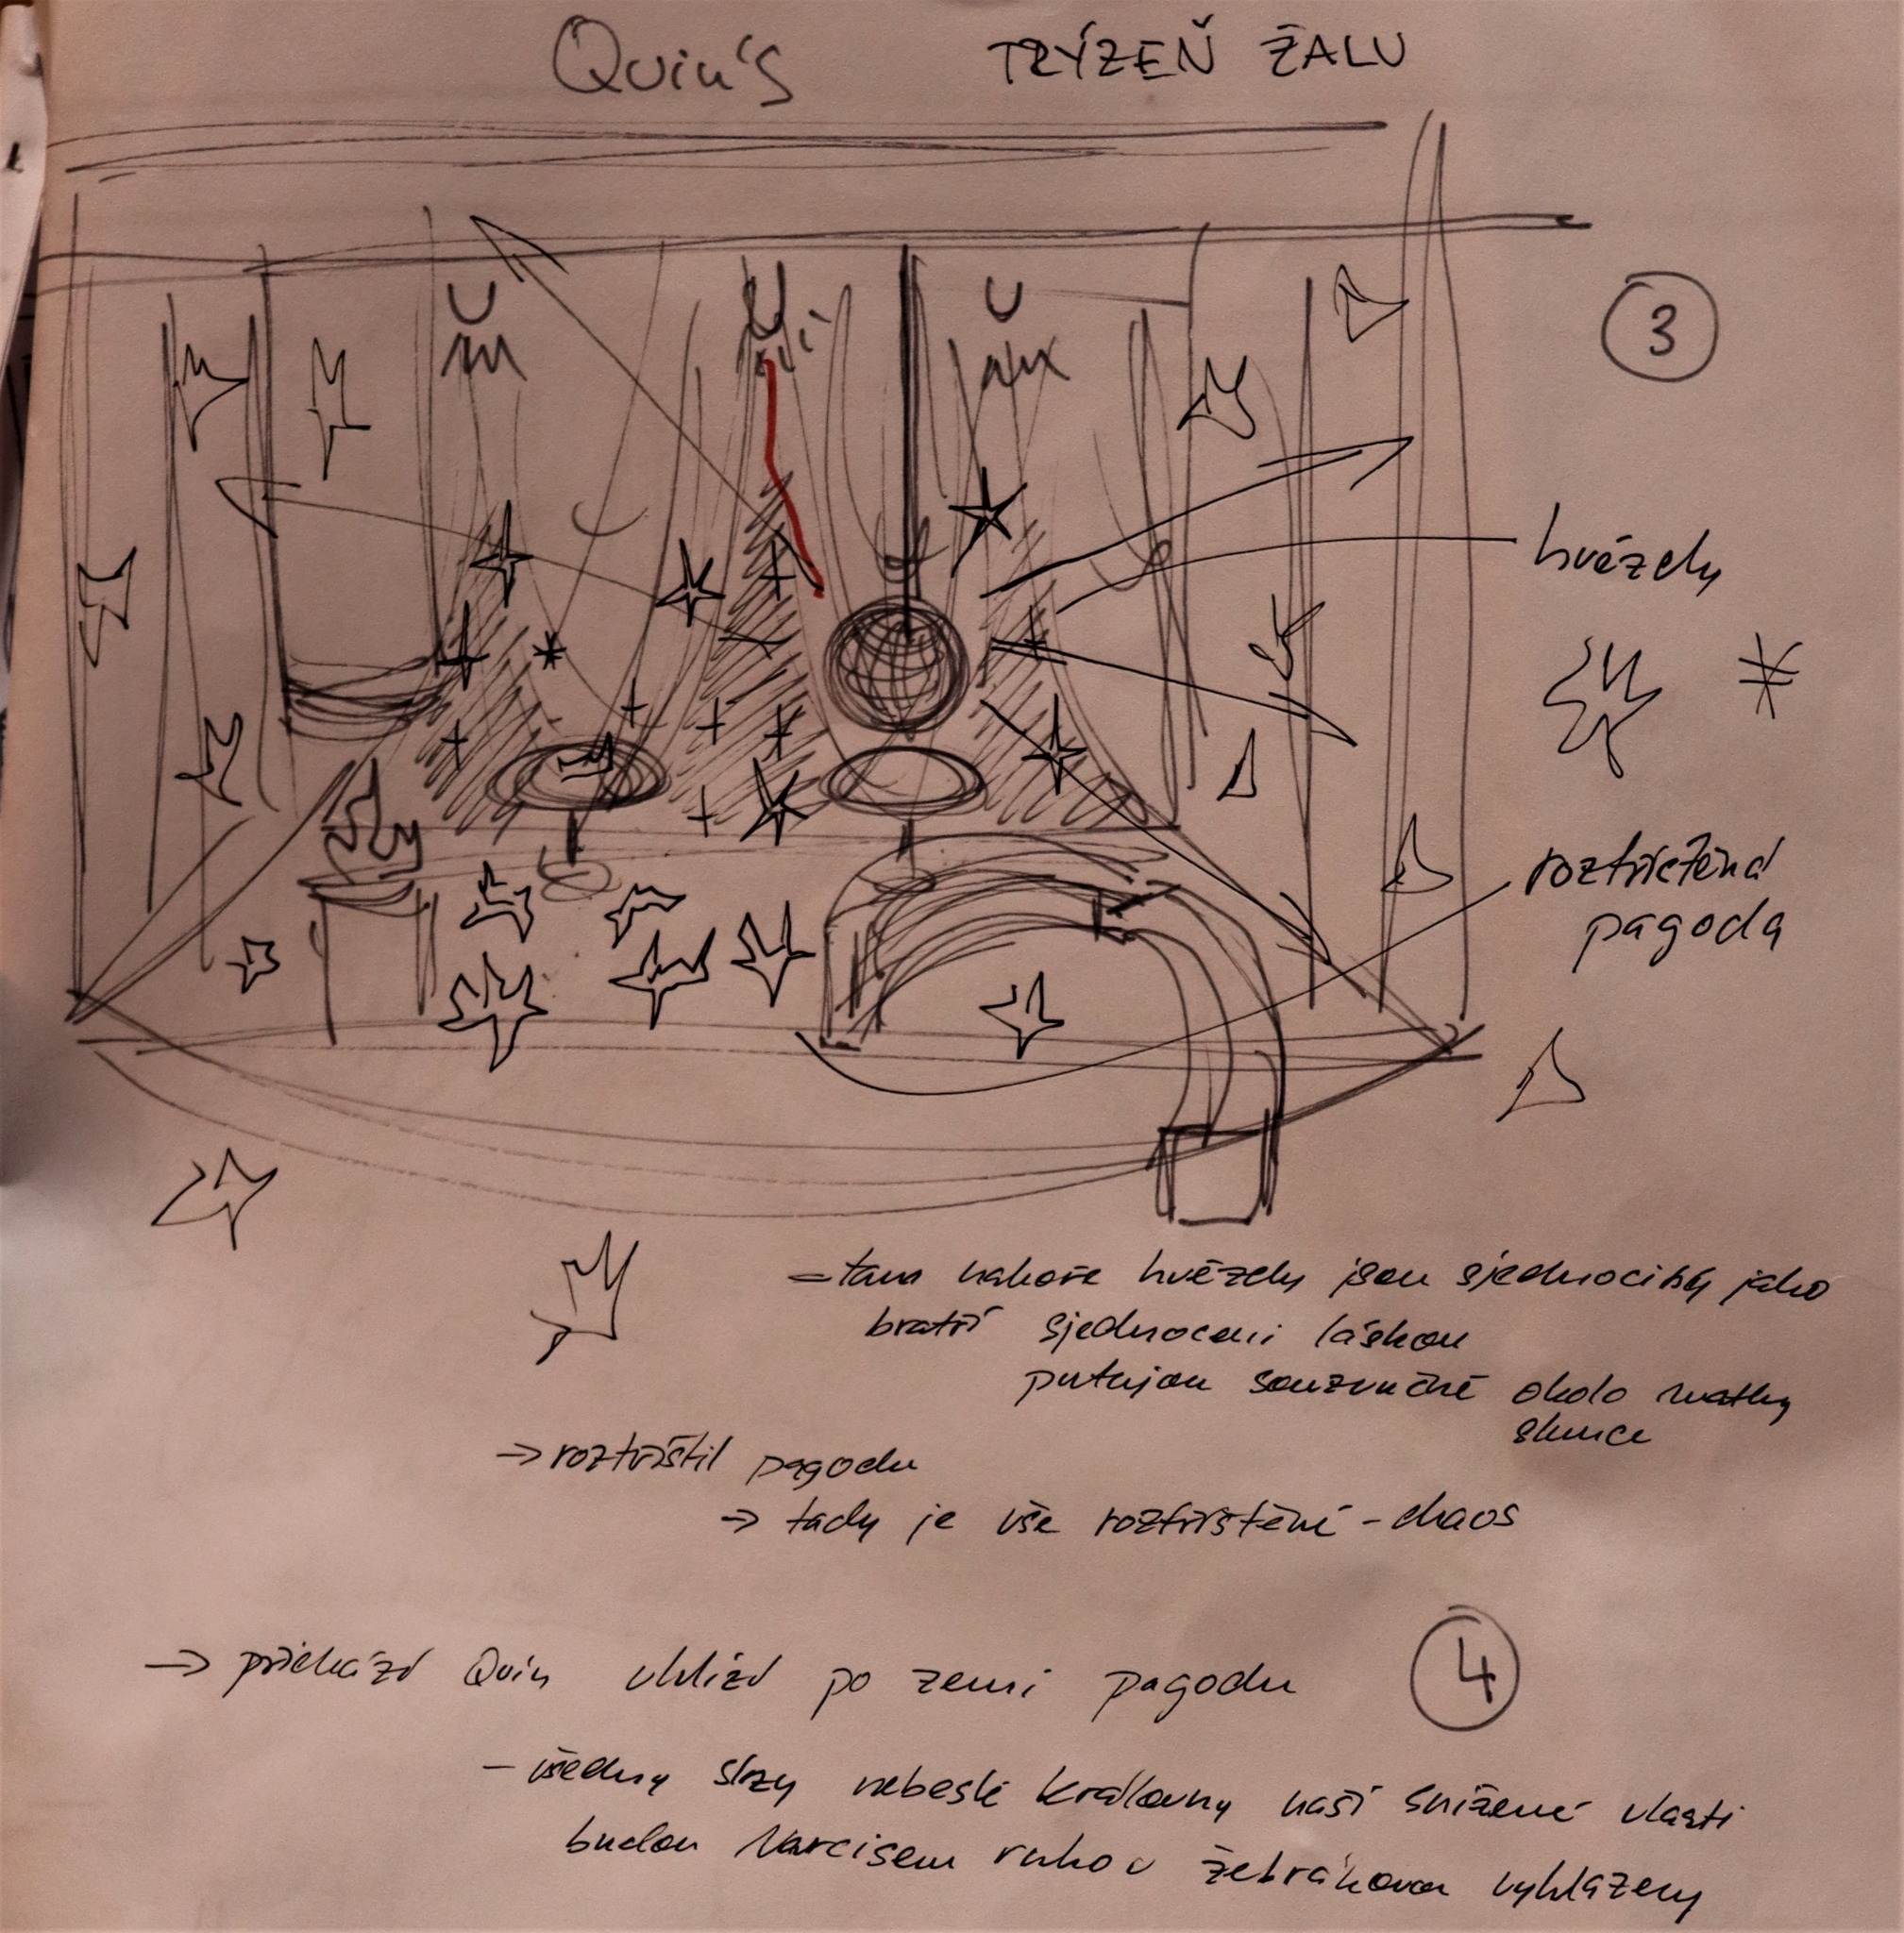 Quin's TRÝZEŇ ŽALU
3
hvězdy
roztříštěná
pagoda
- tam nahoře hvězdy jsou sjednociny jako
bratří sjednoceni láskou
putujou souzvučně okolo matky
slunce
→ roztříštil pagodu
→ tady je vše roztříštění - chaos
→ přichází Quin uklízí po zemi pagodu
4
- všechny slzy nebeské královny naší snížené vlasti
budou Narcisem rukou žebrákovou vyhlazeny